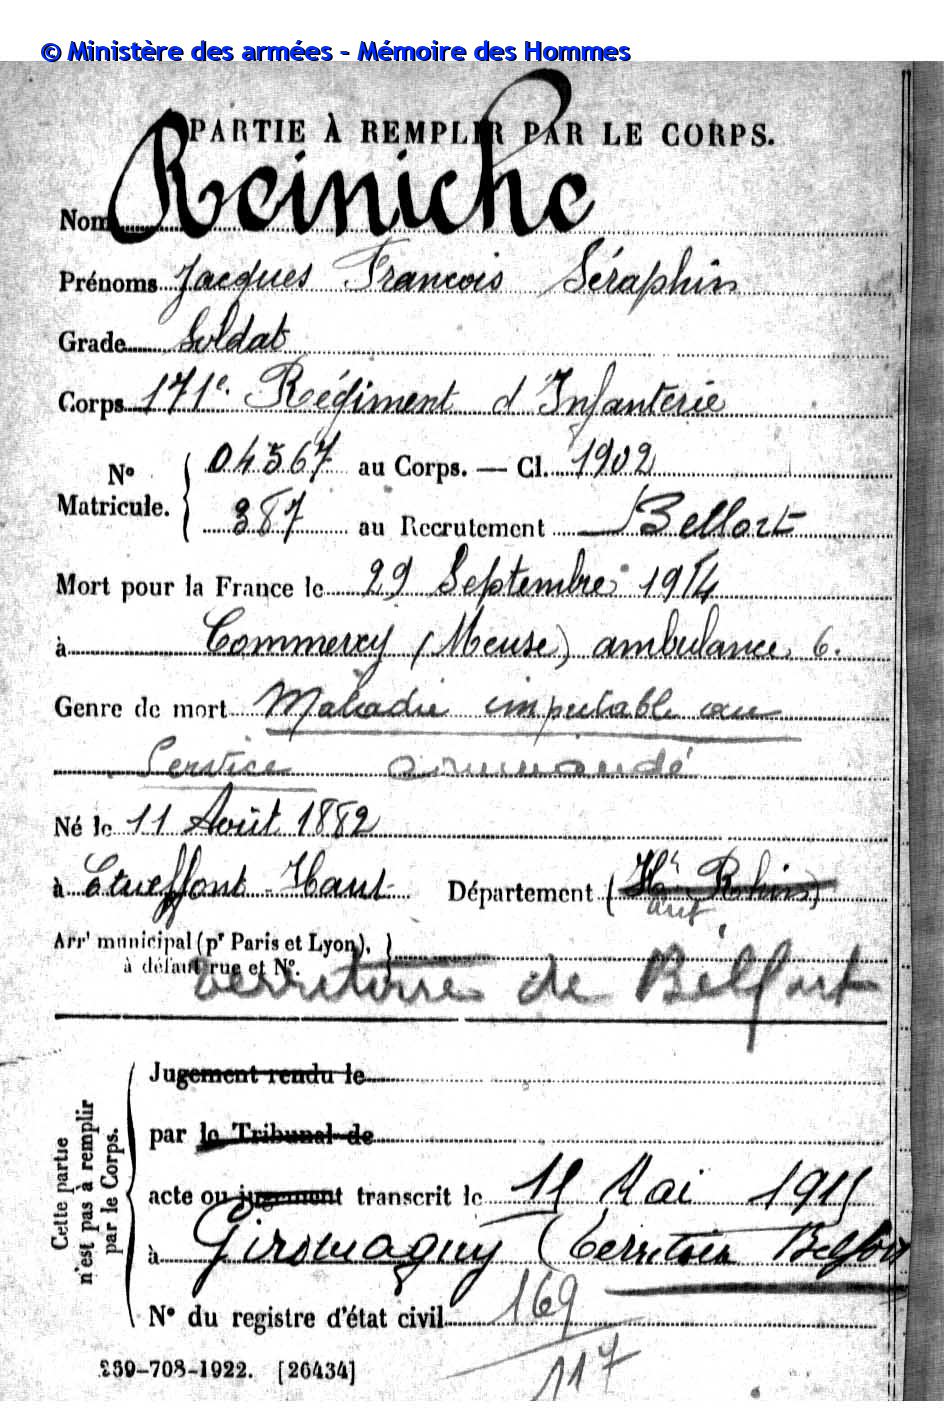 © Ministère des armées - Mémoire des Hommes
PARTIE À REMPLIR PAR LE CORPS.
Nom Reiniche
Prénoms Jacques François Séraphin
Grade Soldat
Corps 171e. Régiment d'Infanterie
N° Matricule. { 04567 au Corps. — Cl. 1902
387 au Recrutement Belfort
Mort pour la France le 29 Septembre 1914
à Commercy (Meuse) ambulance 6.
Genre de mort Maladie imputable au
Service commandé
Né le 11 Août 1882
à Etueffont-Haut Département (Ht Rhin)
Arrt municipal (pr Paris et Lyon), }
à défaut rue et N°.
territoire de Belfort
Cette partie n'est pas à remplir par le Corps.
Jugement rendu le
par le Tribunal de
acte ou jugement transcrit le 11 Mai 1915
à Giromagny (territoire Belfort
N° du registre d'état civil 169
117
269-708-1922. [26434]